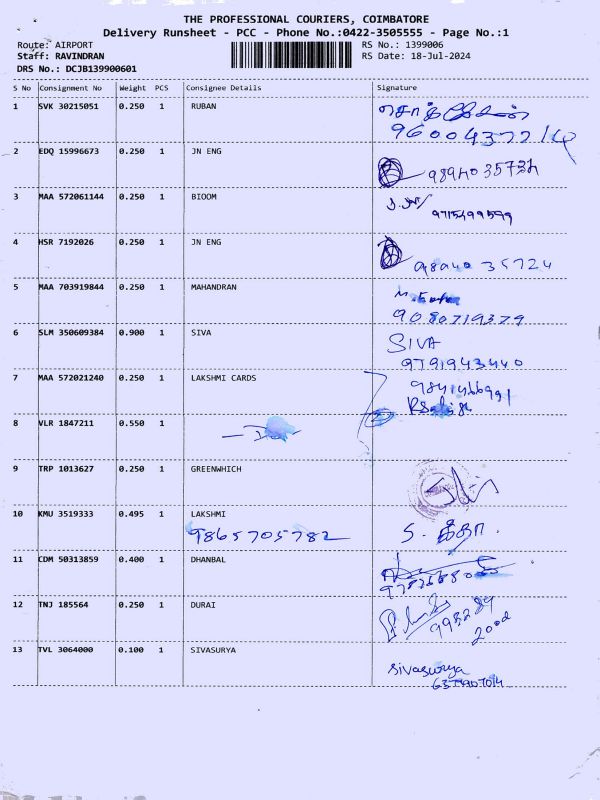 THE PROFESSIONAL COURIERS, COIMBATORE
Delivery Runsheet - PCC - Phone No.:0422-3505555 - Page No.:1
Route: AIRPORT RS No.: 1399006
Staff: RAVINDRAN RS Date: 18-Jul-2024
DRS No.: DCJB139900601
S No Consignment No Weight PCS Consignee Details Signature
1 SVK 30215051 0.250 1 RUBAN
2 EDQ 15996673 0.250 1 JN ENG
3 MAA 572061144 0.250 1 BIOOM
9715499599
4 HSR 7192026 0.250 1 JN ENG
98940 35724
5 MAA 703919844 0.250 1 MAHANDRAN
9080719379
6 SLM 350609384 0.900 1 SIVA SIVA
9791943440
7 MAA 572021240 0.250 1 LAKSHMI CARDS
9841466991
8 VLR 1847211 0.550 1
9 TRP 1013627 0.250 1 GREENWHICH
10 KMU 3519333 0.495 1 LAKSHMI
9865705782 S. கீதா.
11 CDM 50313859 0.400 1 DHANBAL
12 TNJ 185564 0.250 1 DURAI
995289
2002
13 TVL 3064000 0.100 1 SIVASURYA
Sivasurya